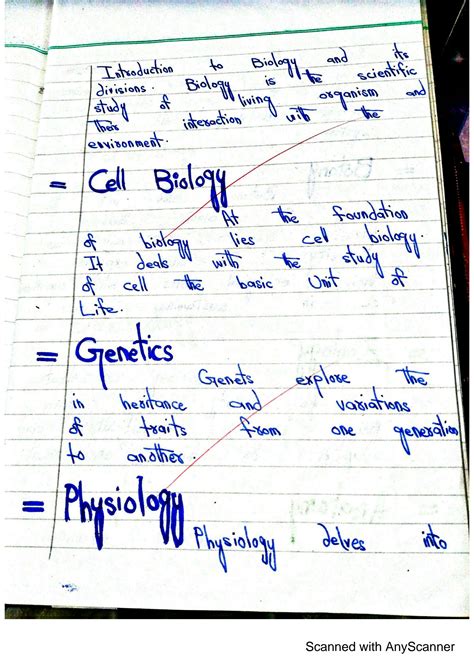 Introduction to Biology and its
divisions. Biology is the scientific
study of living organism and
Ther interaction with the
environment.
= Cell Biology
At the foundation
of biology lies cell biology.
It deals with the study
of cell the basic Unit of
Life.
= Genetics
Genets explore The
in heritance and variations
of traits from one generation
to another.
= Physiology
Physiology delves into
Scanned with AnyScanner